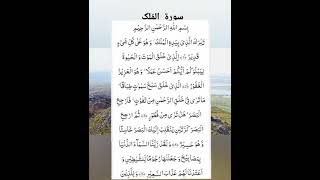 سورة الملک
بِسْمِ اللّٰهِ الرَّحْمٰنِ الرَّحِيْمِ
تَبٰرَكَ الَّذِيْ بِيَدِهِ الْمُلْكُ وَهُوَ عَلٰى كُلِّ شَيْءٍ
قَدِيْرٌ الَّذِيْ خَلَقَ الْمَوْتَ وَالْحَيٰوةَ
لِيَبْلُوَكُمْ اَيُّكُمْ اَحْسَنُ عَمَلًا وَهُوَ الْعَزِيْزُ
الْغَفُوْرُ الَّذِيْ خَلَقَ سَبْعَ سَمٰوٰتٍ طِبَاقًا
مَا تَرٰى فِيْ خَلْقِ الرَّحْمٰنِ مِنْ تَفٰوُتٍ فَارْجِعِ
الْبَصَرَ هَلْ تَرٰى مِنْ فُطُوْرٍ ثُمَّ ارْجِعِ
الْبَصَرَ كَرَّتَيْنِ يَنْقَلِبْ اِلَيْكَ الْبَصَرُ خَاسِئًا
وَّهُوَ حَسِيْرٌ وَلَقَدْ زَيَّنَّا السَّمَآءَ الدُّنْيَا
بِمَصَابِيْحَ وَجَعَلْنٰهَا رُجُوْمًا لِّلشَّيٰطِيْنِ وَ
اَعْتَدْنَا لَهُمْ عَذَابَ السَّعِيْرِ وَلِلَّذِيْنَ